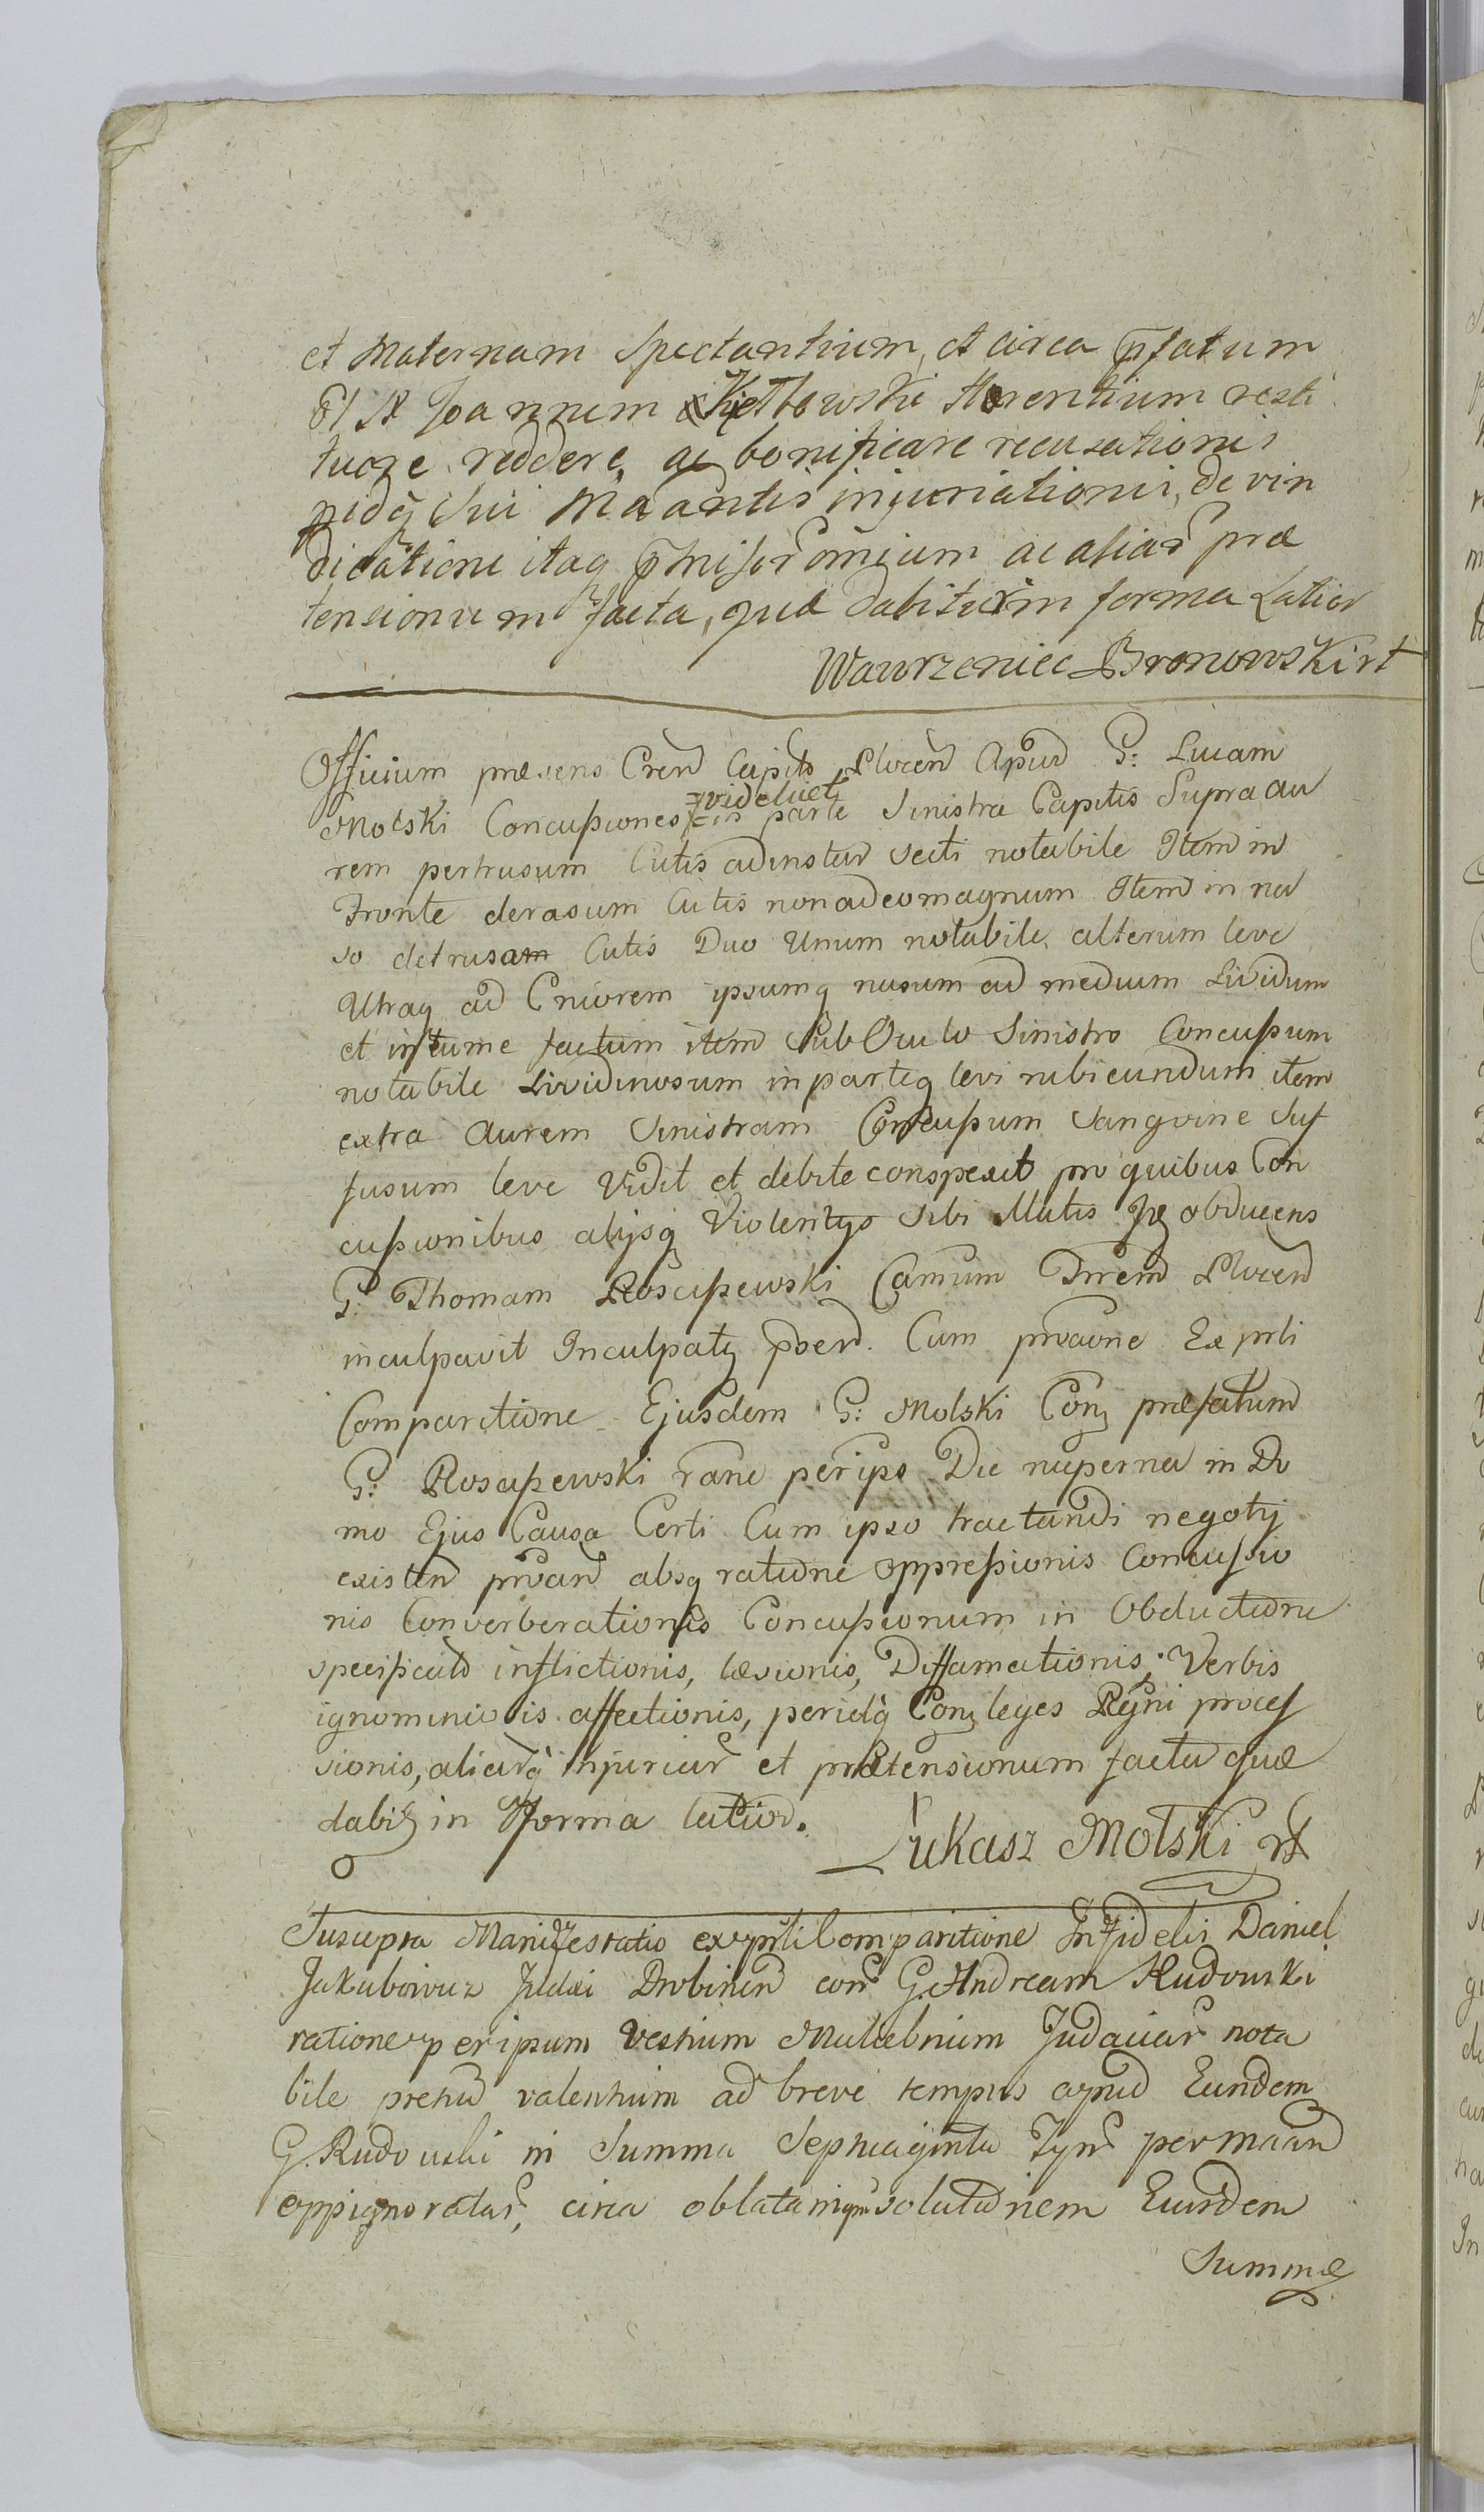 et Maternam Spectantium, et circa p̄fatum
Joannem Kietbowski Haerentium resti
tuere reddere, ac bonificare recusationis
Sui Mandantis injuriationis, de vin
dicatione itaq p̄missor omnium ac aliar præ
tensionum facta, quæ dabitur in forma Latior
Wawrzeniec Bronowski rt
Officium præsens Cren Capitis Plocen Apud G: Lucam
Molski Concussiones videlicet
in parte Sinistra Capitis Supra au
rem pertrusum Cutis adinstar secti notabile Item in
Fronte derasum Cutis non adeo magnum Item in na
so detrusam Cutis Duo Unum notabile, alterum leve
Utraq ad Cruorem ipsumq nasum ad medium Lividum
et in tume factum item Sub Oculo Sinistro Concussum
notabile Lividinosum in parteq levi rubicundum item
extra Aurem Sinistram Concussum Sangvine Suf
fusum leve Vidit et debite conspexit pro quibus Con
cussionibus alijsq Violentijs Sibi illatis obducens
G: Thomam Rosciszewski Camum Trrem Plocen
inculpavit Inculpatq poen. Cum prvaone Ex prli
Comparitione Ejusdem G: Molski Conq præfatum
G: Rosciszewski rane per ips Die nuperna in Do
mo Ejus Causa Certi Cum ipso tractandi negotij
existen prvan absq ratione oppressionis Concussio
nis Converberationis Concussionum in Obductione
specificato inflictionis, læsionis, Diffamationis, Verbis
ignominiosis affectionis, periclq Conq leges Regni proces
sionis, aliarq injuriar et prætensionum facta quæ
dabiq in Forma latior.
Łukasz Molski rt
Suscepta Manifestatio ex prli Comparitione Infidelis Daniel
Jakubowicz Judæi Drobinen con G. Andream Rudowski
ratione per ipsum Vestium Muliebrium Judaicar nota
bile pretiu valentium ad breve tempus apud Eundem
G. Rudowski in Summa Septuaginta Tynf per Maan
oppignoratar, circa oblatamqm solutionem Eiusdem
Summæ